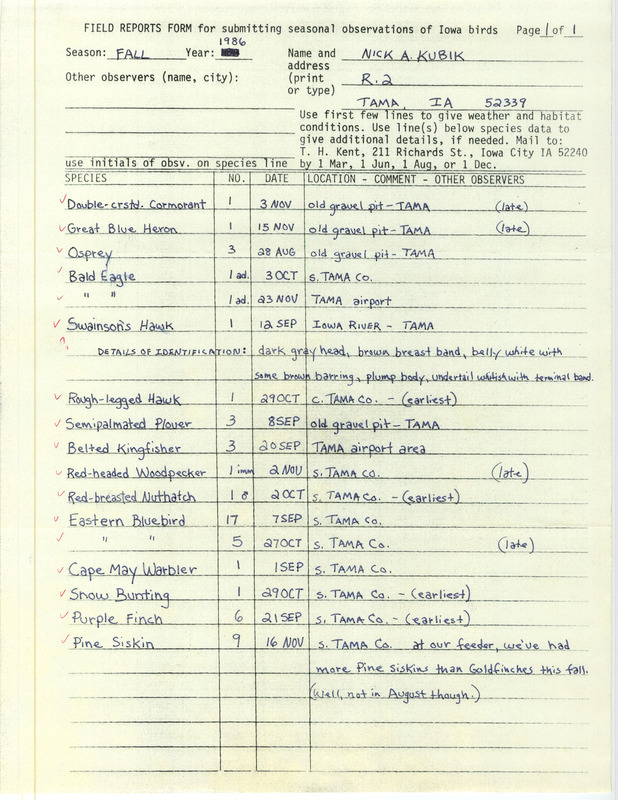 FIELD REPORTS FORM for submitting seasonal observations of Iowa birds Page 1 of 1
Season: FALL Year: 1986
Name and address (print or type) NICK A. KUBIK
Other observers (name, city): R.2
TAMA, IA 52339
Use first few lines to give weather and habitat
conditions. Use line(s) below species data to
give additional details, if needed. Mail to:
T. H. Kent, 211 Richards St., Iowa City IA 52240
use initials of obsv. on species line by 1 Mar, 1 Jun, 1 Aug, or 1 Dec.
SPECIES NO. DATE LOCATION - COMMENT - OTHER OBSERVERS
Double-crstd. Cormorant 1 3 NOV old gravel pit - TAMA (late)
Great Blue Heron 1 15 NOV old gravel pit - TAMA (late)
Osprey 3 28 AUG old gravel pit - TAMA
Bald Eagle 1 ad. 3 OCT S. TAMA Co.
" " 1 ad. 23 NOV TAMA airport
Swainson's Hawk 1 12 SEP IOWA RIVER - TAMA
? DETAILS OF IDENTIFICATION: dark gray head, brown breast band, belly white with
some brown barring, plump body, undertail whitish with terminal band.
Rough-legged Hawk 1 29 OCT C. TAMA Co. - (earliest)
Semipalmated Plover 3 8 SEP old gravel pit - TAMA
Belted Kingfisher 3 20 SEP TAMA airport area
Red-headed Woodpecker 1 imm 2 NOV S. TAMA Co. (late)
Red-breasted Nuthatch 1 2 OCT S. TAMA Co. - (earliest)
Eastern Bluebird 17 7 SEP S. TAMA Co.
" " 5 27 OCT S. TAMA Co. (late)
Cape May Warbler 1 1 SEP S. TAMA Co.
Snow Bunting 1 29 OCT S. TAMA Co. - (earliest)
Purple Finch 6 21 SEP S. TAMA Co. - (earliest)
Pine Siskin 9 16 NOV S. TAMA Co. at our feeder, we've had
more Pine Siskins than Goldfinches this fall.
(Well, not in August though.)